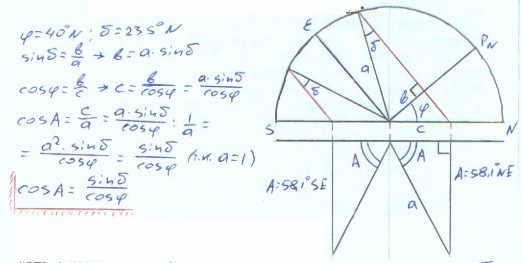 φ=40°N ; δ=23,5°N
sinδ = b/a → b = a·sinδ
cosφ = b/c → c = b/cosφ = a·sinδ/cosφ
cosA = c/a = a·sinδ/cosφ : 1/a =
= a²·sinδ/cosφ = sinδ/cosφ (т.к. a=1)
cosA = sinδ/cosφ
E
δ
a
P_N
δ
b
φ
S
c
N
A
A
A=58,1°SE
a
A=58,1NE